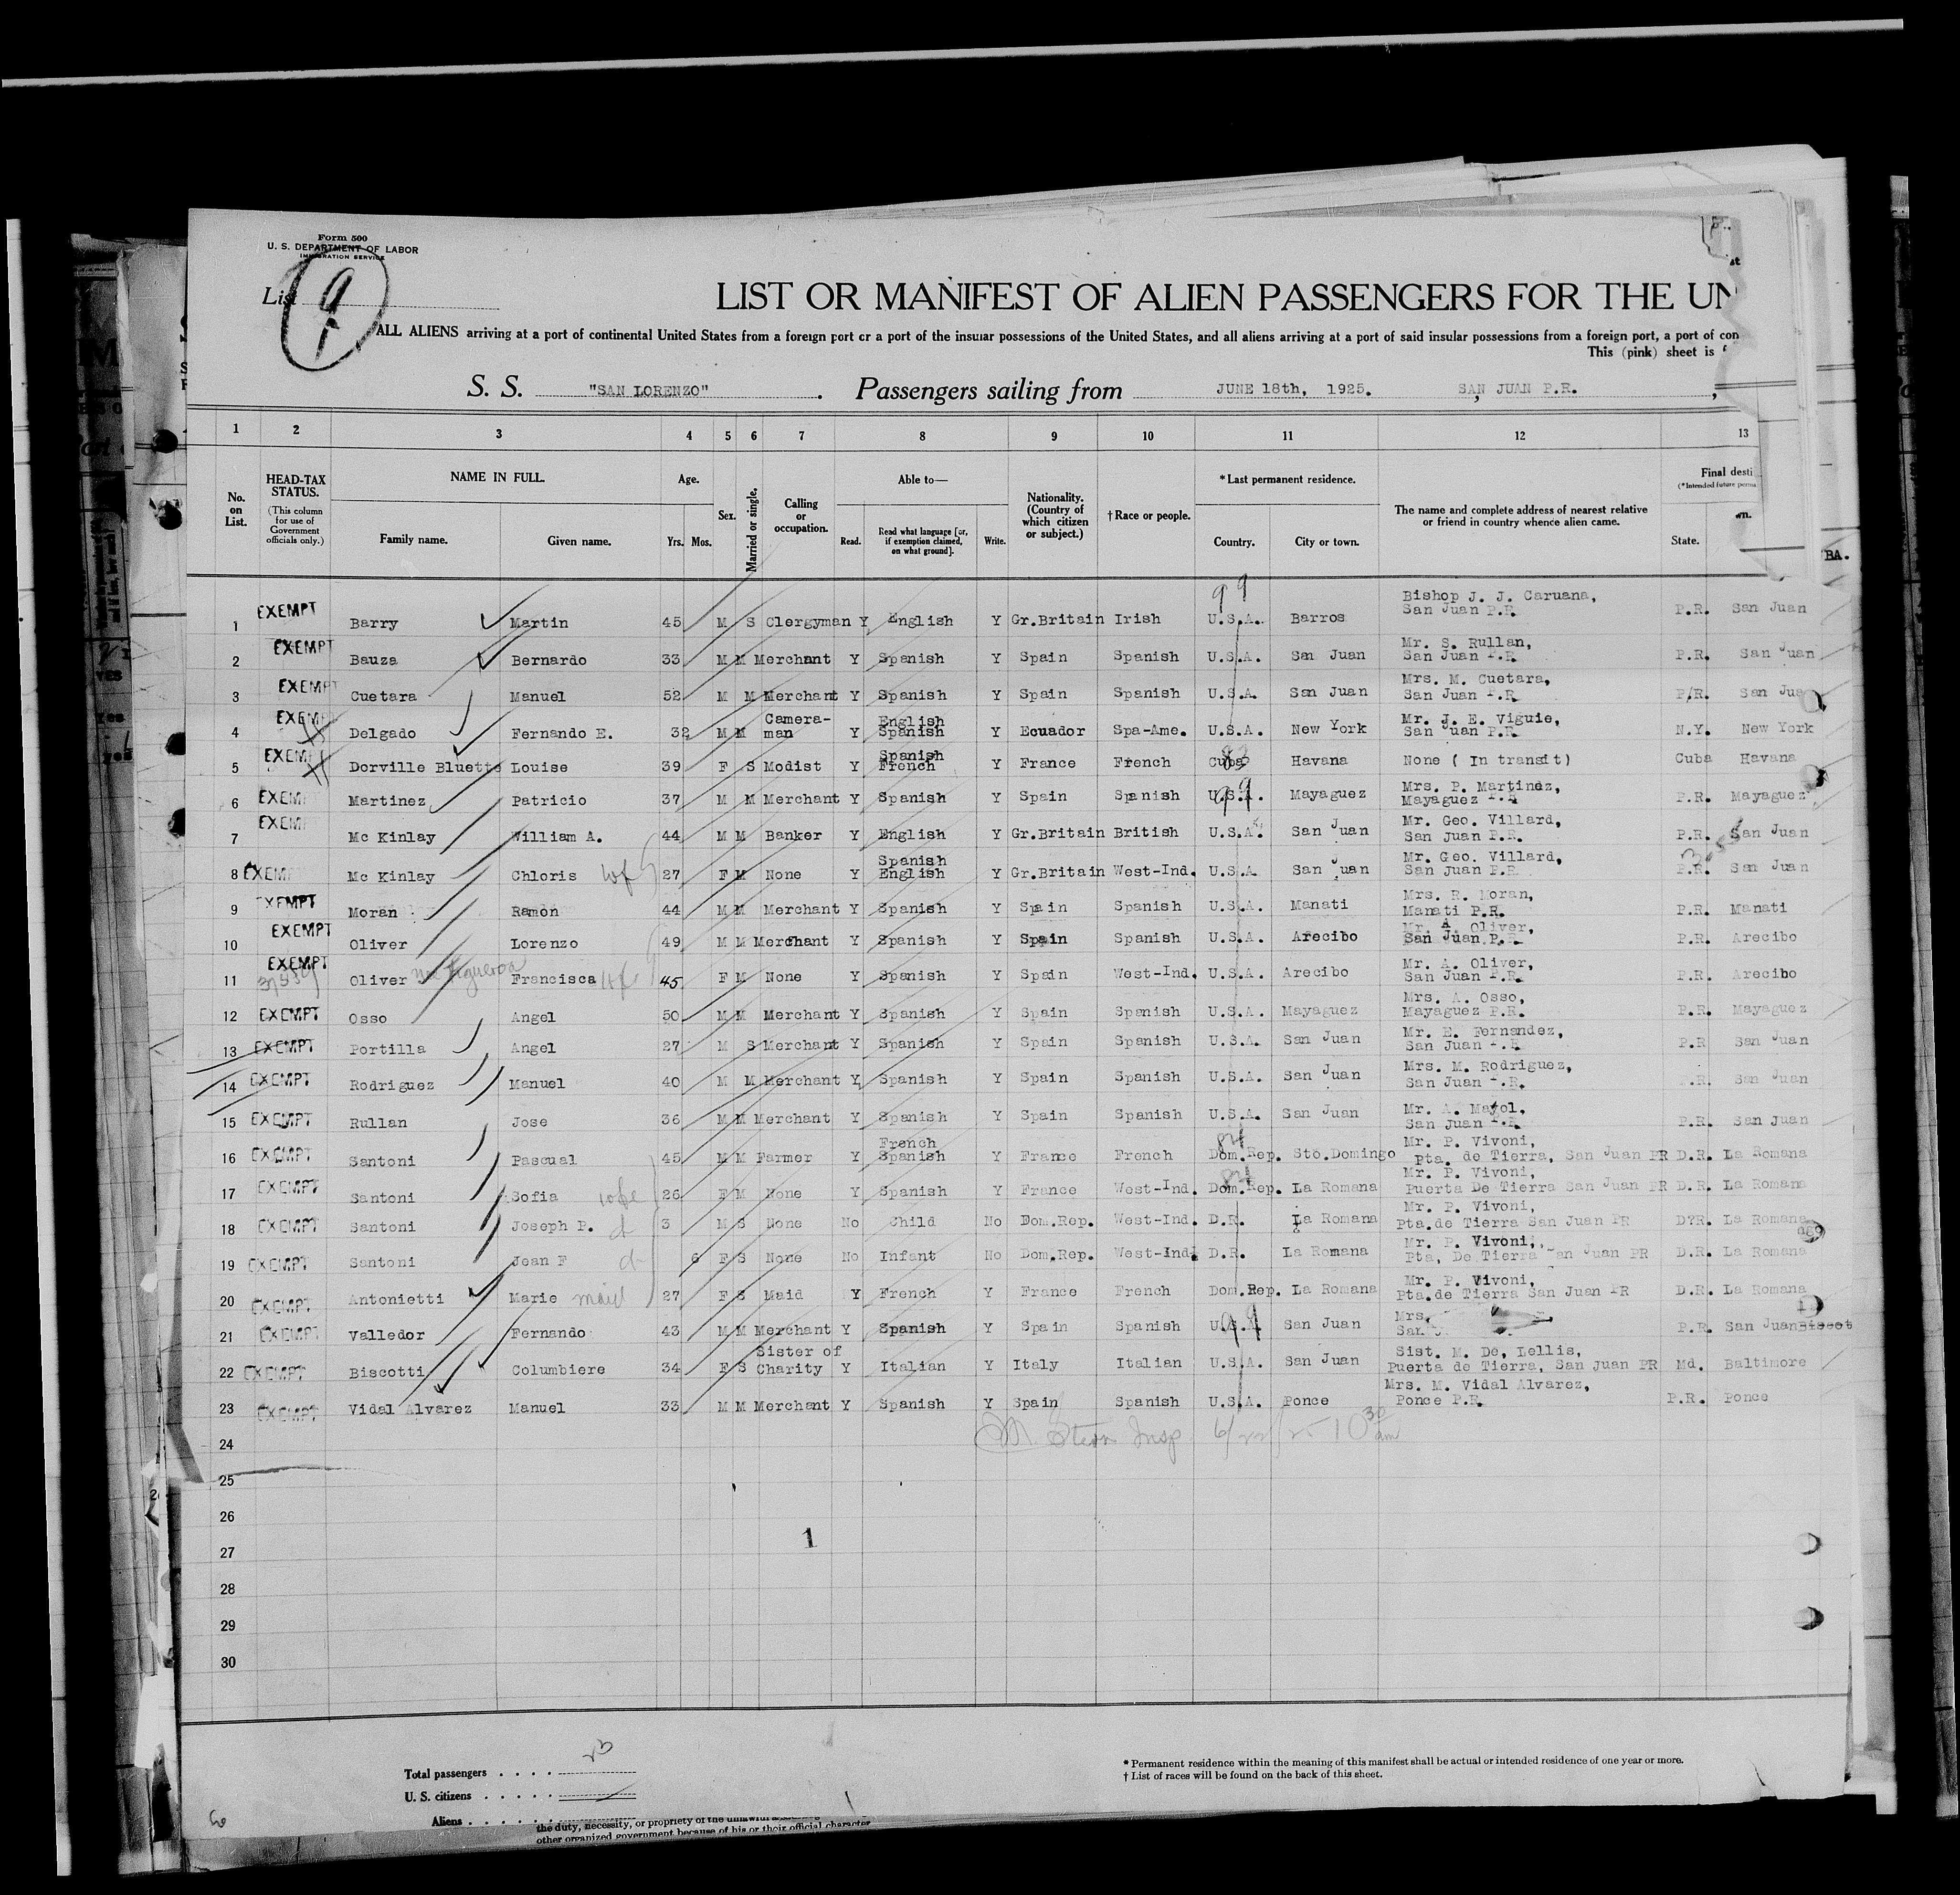 Form 500
U. S. DEPARTMENT OF LABOR
IMMIGRATION SERVICE
List 9
LIST OR MANIFEST OF ALIEN PASSENGERS FOR THE UN
ALL ALIENS arriving at a port of continental United States from a foreign port or a port of the insular possessions of the United States, and all aliens arriving at a port of said insular possessions from a foreign port, a port of con
This (pink) sheet is
S. S. "SAN LORENZO" . Passengers sailing from JUNE 18th, 1925. SAN JUAN P.R. ,
1 2 3 4 5 6 7 8 9 10 11 12 13
No. on List. HEAD-TAX STATUS. (This column for use of Government officials only.) NAME IN FULL. Family name. Given name. Age. Yrs. Mos. Sex. Married or single. Calling or occupation. Able to— Read. Read what language [or, if exemption claimed, on what ground]. Write. Nationality. (Country of which citizen or subject.) † Race or people. * Last permanent residence. Country. City or town. The name and complete address of nearest relative or friend in country whence alien came. Final desti (*Intended future perma State. wn.
BA.
99
1 EXEMPT Barry Martin 45 M S Clergyman Y English Y Gr.Britain Irish U.S.A. Barros Bishop J. J. Caruana, San Juan P.R. P.R. San Juan
2 EXEMPT Bauza Bernardo 33 M M Merchant Y Spanish Y Spain Spanish U.S.A. San Juan Mr. S. Rullan, San Juan P.R. P.R. San Juan
3 EXEMPT Cuetara Manuel 52 M M Merchant Y Spanish Y Spain Spanish U.S.A. San Juan Mrs. M. Cuetara, San Juan P.R. P/R. San Jua
4 EXEMP Delgado Fernando E. 32 M M Camera-man Y English Spanish Y Ecuador Spa-Ame. U.S.A. New York Mr. J. E. Viguie, San Juan P.R. N.Y. New York
5 EXEMPT Dorville Bluette Louise 39 F S Modist Y Spanish French Y France French Cuba Havana None ( In transit) Cuba Havana
6 EXEM Martinez Patricio 37 M M Merchant Y Spanish Y Spain Spanish U.S.A. Mayaguez Mrs. P. Martinez, Mayaguez P.R. P.R. Mayaguez
7 EXEM Mc Kinlay William A. 44 M M Banker Y English Y Gr.Britain British U.S.A. San Juan Mr. Geo. Villard, San Juan P.R. P.R. San Juan
8 EXEM Mc Kinlay Chloris wf 27 F M None Y Spanish English Y Gr.Britain West-Ind. U.S.A. San Juan Mr. Geo. Villard, San Juan P.R. P.R. San Juan
9 EXEMPT Moran Ramon 44 M M Merchant Y Spanish Y Spain Spanish U.S.A. Manati Mrs. R. Moran, Manati P.R. P.R. Manati
10 EXEMPT Oliver Lorenzo 49 M M Merchant Y Spanish Y Spain Spanish U.S.A. Arecibo Mr. A. Oliver, San Juan P.R. P.R. Arecibo
11 EXEMPT Oliver nee Figueroa Francisca wf 45 F M None Y Spanish Y Spain West-Ind. U.S.A. Arecibo Mr. A. Oliver, San Juan P.R. P.R. Arecibo
12 EXEMPT Osso Angel 50 M M Merchant Y Spanish Y Spain Spanish U.S.A. Mayaguez Mrs. A. Osso, Mayaguez P.R. P.R. Mayaguez
13 EXEMPT Portilla Angel 27 M S Merchant Y Spanish Y Spain Spanish U.S.A. San Juan Mr. E. Fernandez, San Juan P.R. P.R San Juan
14 EXEMPT Rodriguez Manuel 40 M M Merchant Y Spanish Y Spain Spanish U.S.A. San Juan Mrs. M. Rodriguez, San Juan P.R. .R. San Juan
15 EXEMPT Rullan Jose 36 M M Merchant Y Spanish Y Spain Spanish U.S.A. San Juan Mr. A. Mayol, San Juan P.R. P.R. San Juan
16 EXEMPT Santoni Pascual 45 M M Farmer Y French Spanish Y France French Dom.Rep. Sto.Domingo Mr. P. Vivoni, Pta. de Tierra, San Juan PR D.R. La Romana
17 EXEMPT Santoni Sofia wife 26 F M None Y Spanish Y France West-Ind. Dom.Rep. La Romana Mr. P. Vivoni, Puerta De Tierra San Juan PR D.R. La Romana
18 EXEMPT Santoni Joseph P. 3 M S None No Child No Dom.Rep. West-Ind. D.R. La Romana Mr. P. Vivoni, Pta.de Tierra San Juan PR D?R. La Romana
19 EXEMPT Santoni Jean F 6 F S None No Infant No Dom.Rep. West-Ind. D.R. La Romana Mr. P. Vivoni,, Pta, De Tierra San Juan PR D.R. La Romana
20 EXEMPT Antonietti Marie maid 27 F S Maid Y French Y France French Dom.Rep. La Romana Mr. P. Vivoni, Pta.de Tierra San Juan PR D.R. La Romana
21 EXEMPT Valledor Fernando 43 M M Merchant Y Spanish Y Spain Spanish U.S.A. San Juan Mrs. San J P.R. San Juan
22 EXEMPT Biscotti Columbiere 34 F S Sister of Charity Y Italian Y Italy Italian U.S.A. San Juan Sist. M. De, Lellis, Puerta de Tierra, San Juan PR Md. Baltimore
23 EXEMPT Vidal Alvarez Manuel 33 M M Merchant Y Spanish Y Spain Spanish U.S.A. Ponce Mrs. M. Vidal Alvarez, Ponce P.R. P.R. Ponce
24 M. Stern Insp. 6/22/25 10 30 am
25
26
27
1
28
29
30
Total passengers . . . . 23
U. S. citizens . . . . .
Aliens . . . . . .
* Permanent residence within the meaning of this manifest shall be actual or intended residence of one year or more.
† List of races will be found on the back of this sheet.
the duty, necessity, or propriety of the unlawful
other organized government because of his or their official character